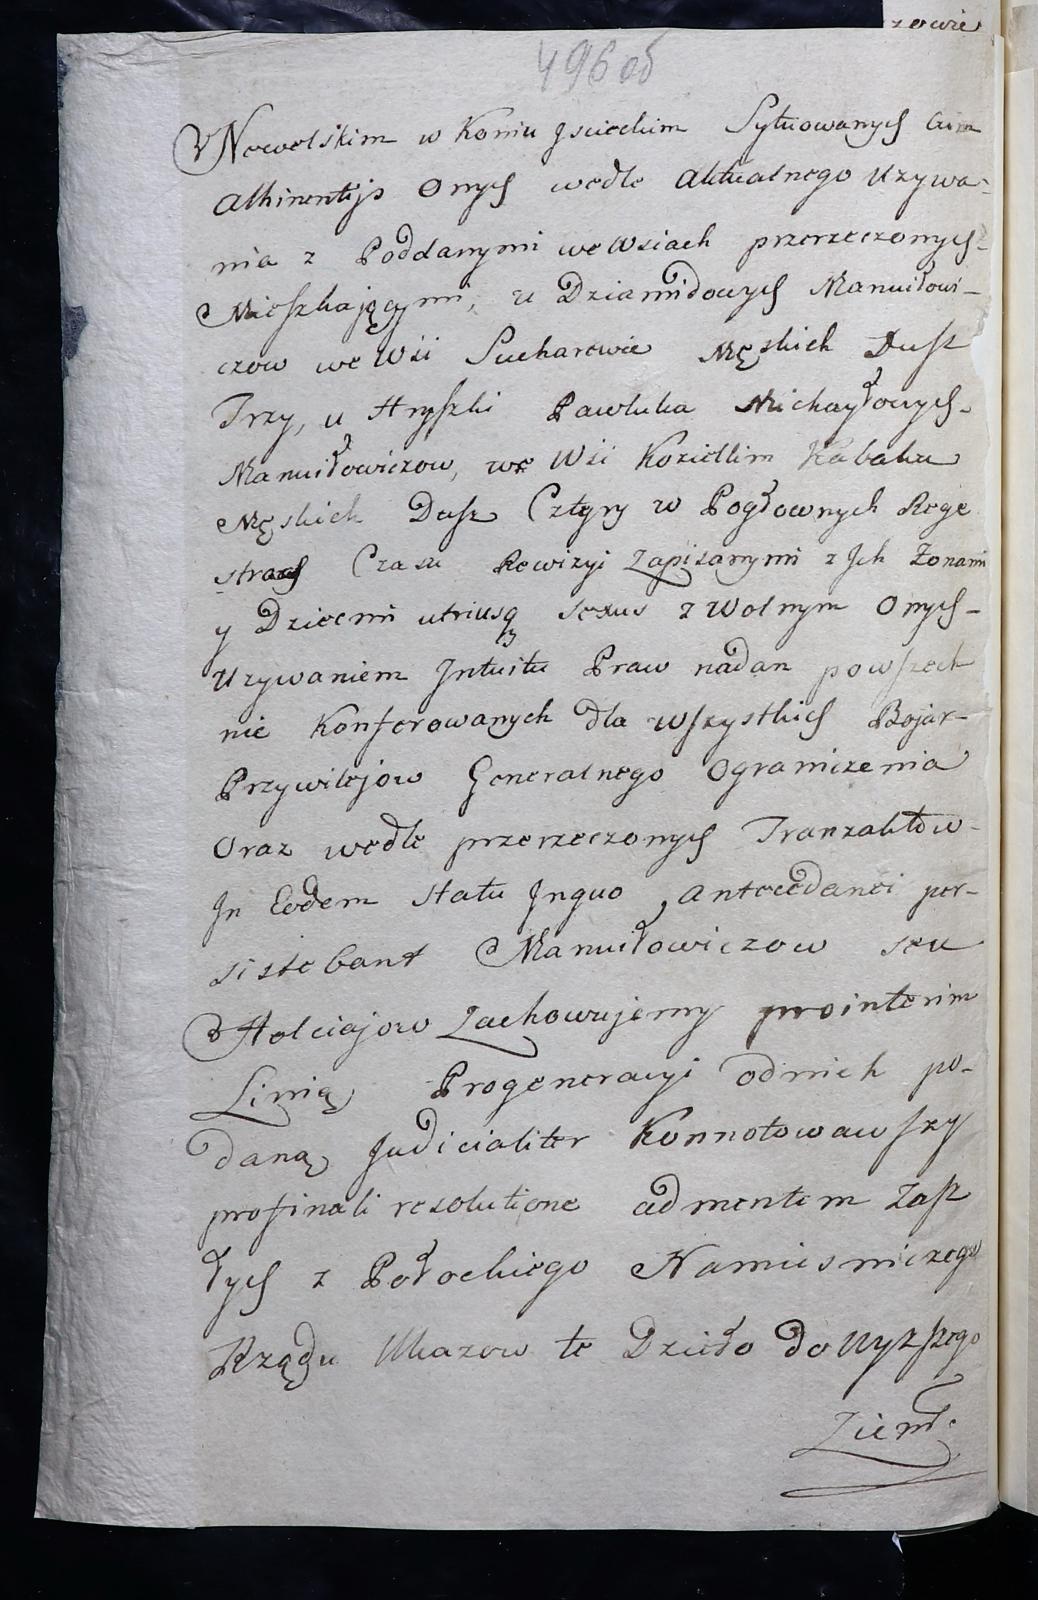 zowie
496 об
Newelskim w Koniu Jsieckim Sytuowanych cum
Attinentijs Onych wedle Aktualnego Uzywa-
nia z Poddanymi we Wsiach przerzeczonych-
Mieszkającymi, u Dziamidowych Manuiłowi-
czow we Wsi Sucharowie Męskich Dusz
Trzy, u Hryszki Pawluka Michayłowych-
Manuiłowiczow, we Wsi Kozietlim Kabaku
Męskich Dusz Cztyry w Pogłownych Rege
strach Czasu Rewizyi Zapisanymi z Jch Zonami
y Dziecmi utriusq sexus z Wolnym Onych-
Uzywaniem Jntuitu Praw nadan powszech
nie Konferowanych dla wszystkich Bojar-
Przywilejow Generalnego Ograniczenia
Oraz wedle przerzeczonych Tranzaktow-
Jn Eodem statu Jnquo Antecedanei per-
sistebant Manuiłowiczow seu
Holciajow Zachowujemy prointerim
Linią Progeneracyi odnich po-
daną Judicialiter Konnotowawszy
profinali resolutione admentem Zasz
łych z Połockiego Namiesniczego
Rządu Ukazow te Dzieło do Wyzszego
Ziemł.